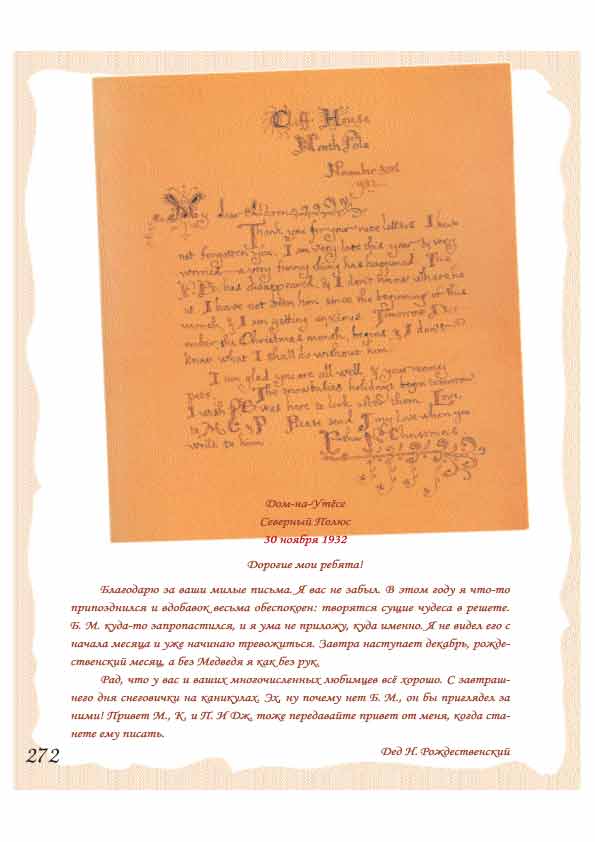 Cliff House
North Pole
November 30th
1932
My dear children
Thank you for your nice letters. I have
not forgotten you. I am very late this year & very
worried—a very funny thing has happened. The
P.B. has disappeared, & I don't know where he
is. I have not seen him since the beginning of this
month, & I am getting anxious. Tomorrow De-
cember, the Christmas month, begins & I don't
know what I shall do without him.
I am glad you are all well & your many
pets. The snowbabies holidays begin tomorrow.
I wish PB was here to look after them. Love
to M. C & P. Please send J my love when you
write to him.
Father N Christmas
Дом-на-Утёсе
Северный Полюс
30 ноября 1932
Дорогие мои ребята!
Благодарю за ваши милые письма. Я вас не забыл. В этом году я что-то
припозднился и вдобавок весьма обеспокоен: творятся сущие чудеса в решете.
Б. М. куда-то запропастился, и я ума не приложу, куда именно. Я не видел его с
начала месяца и уже начинаю тревожиться. Завтра наступает декабрь, рожде-
ственский месяц, а без Медведя я как без рук.
Рад, что у вас и ваших многочисленных любимцев всё хорошо. С завтраш-
него дня снеговички на каникулах. Эх, ну почему нет Б. М., он бы приглядел за
ними! Привет М., К. и П. И Дж. тоже передавайте привет от меня, когда ста-
нете ему писать.
Дед Н. Рождественский
272